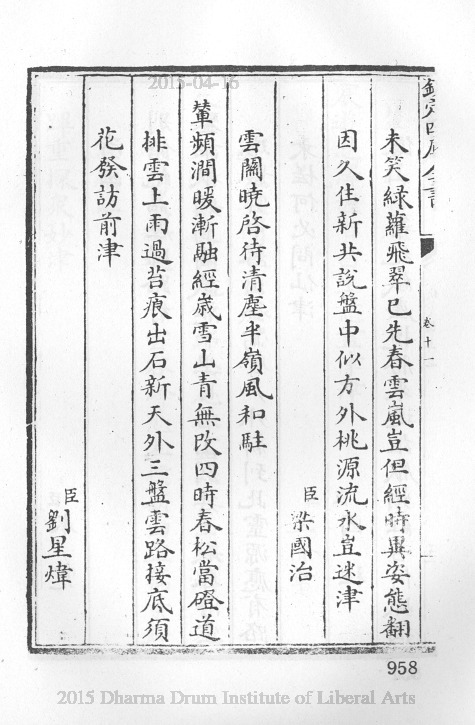 2015-04-16
欽定四庫全書
卷十一
未笑綠蘿飛翠已先春雲嵐豈但經時異姿態翻
因久住新共說盤中似方外桃源流水豈迷津
臣梁國治
雲關曉啓待清塵半嶺風和駐
輦頻澗暖漸融經歲雪山青無改四時春松當磴道
排雲上雨過苔痕出石新天外三盤雲路接底須
花發訪前津
臣劉星煒
958
2015 Dharma Drum Institute of Liberal Arts